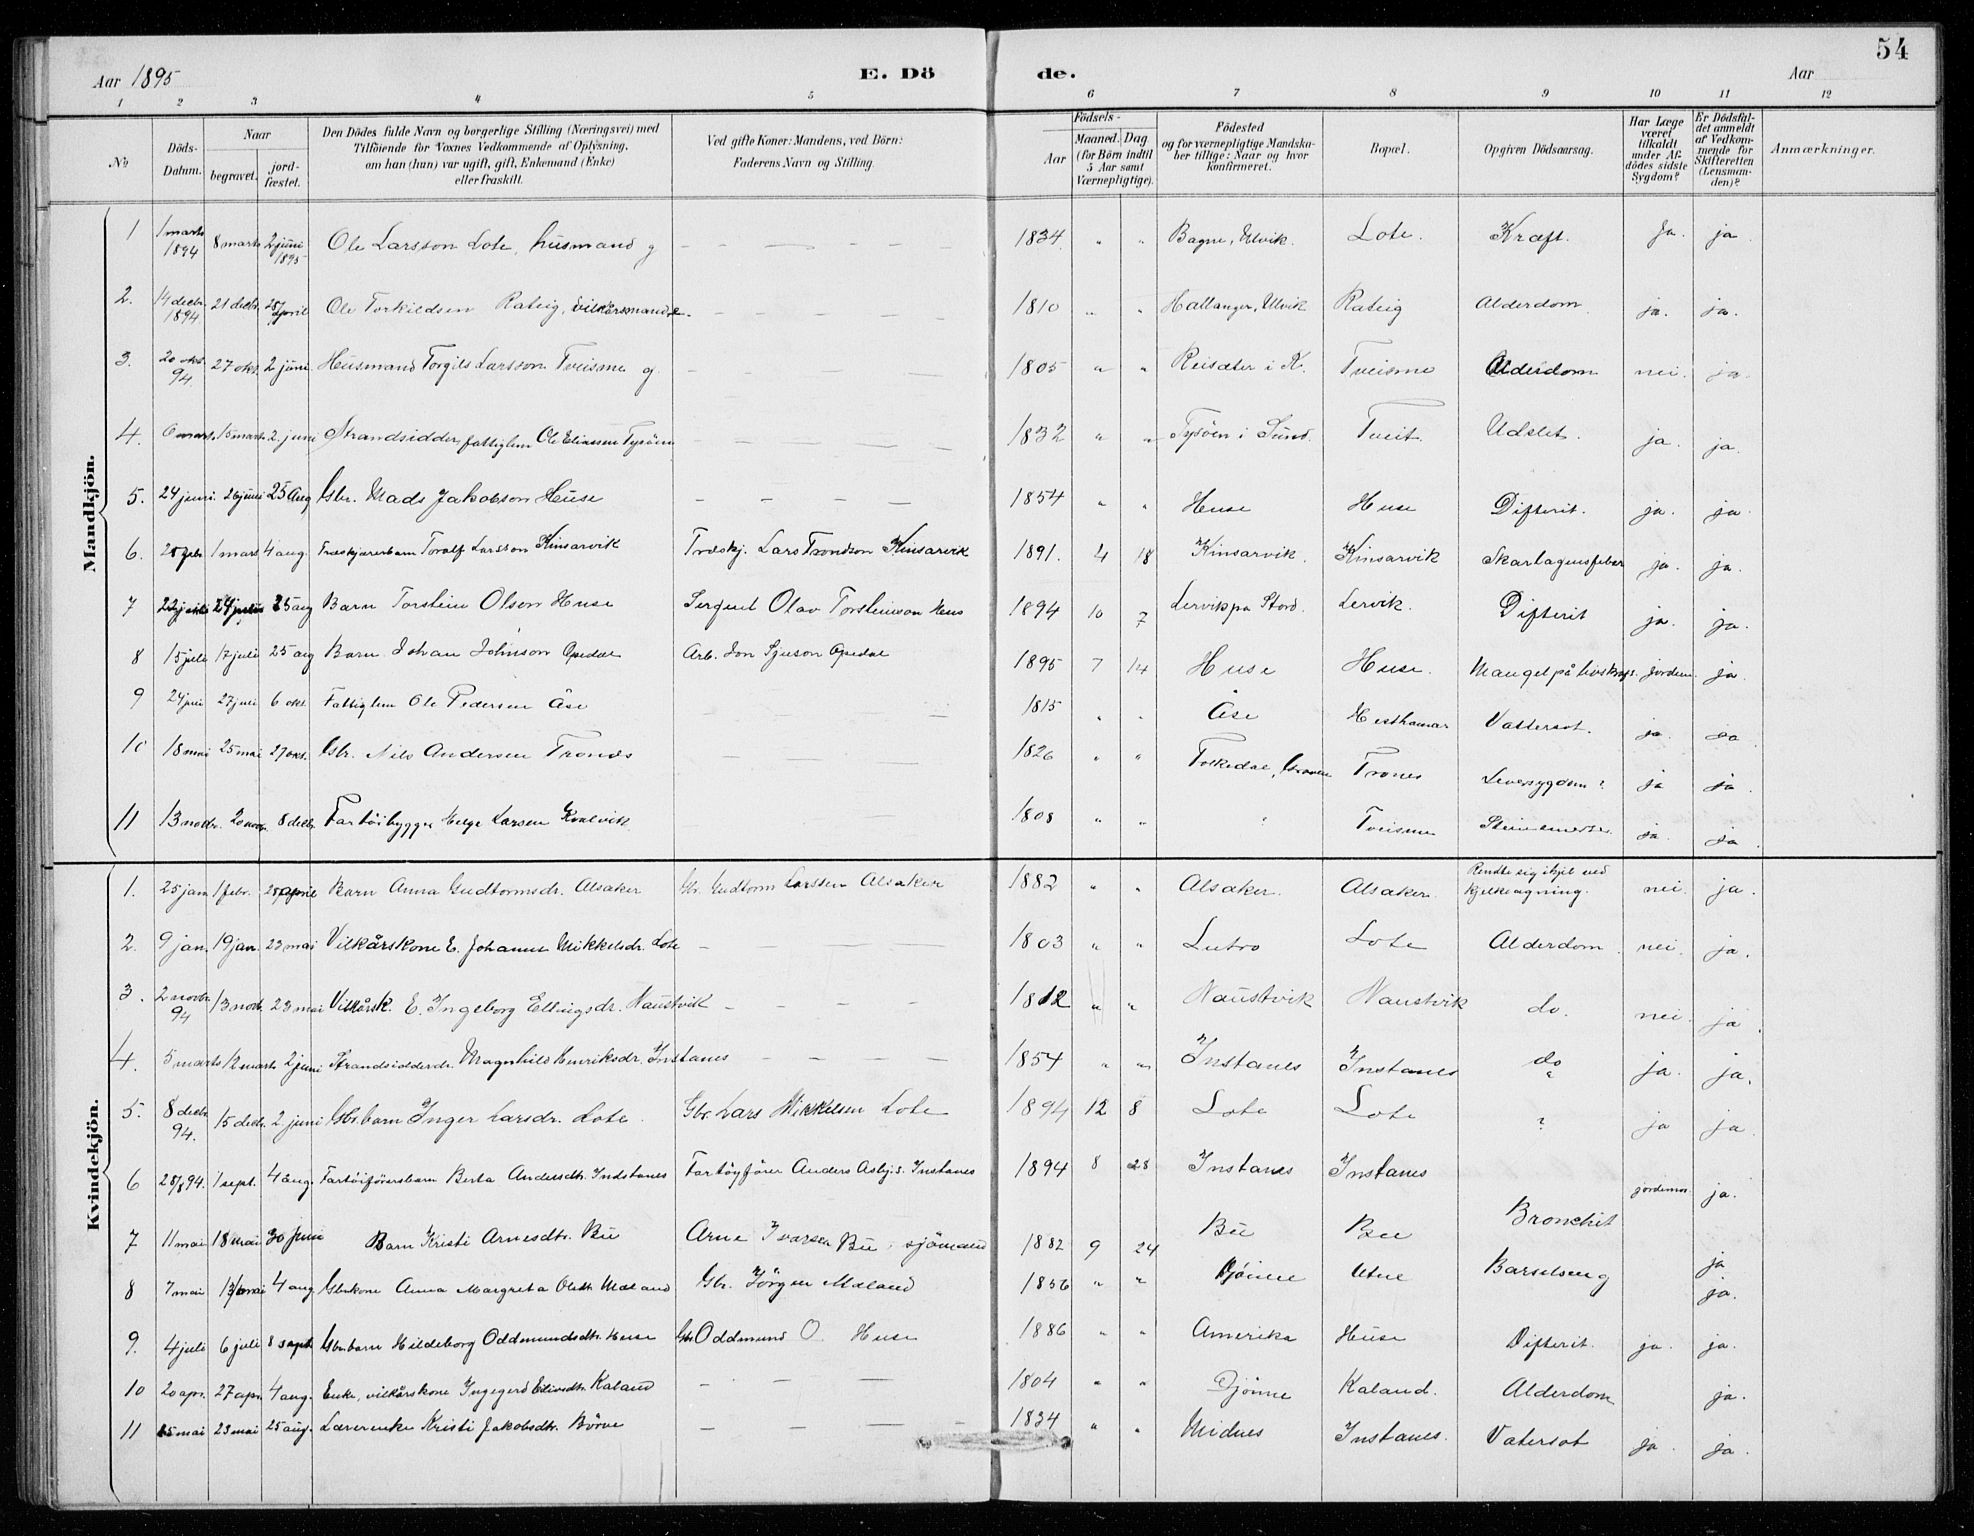 54
Aar 1895 E. Dö de. Aar
1 2 3 4 5 6 7 8 9 10 11 12
No
Döds-Datum.
Naar
begravet.
jord-fæstet.
Den Dödes fulde Navn og borgerlige Stilling (Næringsvei) med
Tilföiende for Voxnes Vedkommende af Oplysning,
om han (hun) var ugift, gift, Enkemand (Enke)
eller fraskilt.
Ved gifte Koner: Mandens, ved Börn:
Faderens Navn og Stilling.
Födsels-
Aar
Maaned. Dag
(for Börn indtil
5 Aar samt
Værnepligtige).
Födested
og for værnepligtige Mandska-
ber tillige: Naar og hvor
konfirmeret.
Bopæl.
Opgiven Dödsaarsag.
Har Læge
været
tilkaldt
under Af-
dödes sidste
Sygdom?
Er Dödsfal-
det anmeldt
af Vedkom-
mende for
Skifteretten
(Lensman-
den)?
Anmærkninger.
Mandkjön.
1 1 marts 1894 8 marts 2 juni 1895 Ole Larsson Lote, husmand g — 1834 " " Bagne, Ulvik. Lote. Kræft. Ja. ja
2. 14 decbr. 1894 21 decbr. 28 april Ole Torkildsen Rateig, vilkårsmand e. — 1810 " " Hallanger, Ulvik Rateig Alderdom ja. ja.
3. 20 okt. 94 27 okt. 2 juni Husmand Torgils Larsson Tveisme g — 1805 " " Reisæter i K. Tveisme Alderdom nei. ja.
4. 6 marts 15 marts 2. juni Strandsidder, fattiglem Ole Eliassen Tysöen — 1832 " " Tysöen i Sund. Tveit. Udslet. ja. ja.
5. 24 juni. 26 juni 25 Aug Gbr. Mads Jakobson Huse — 1854 " " Huse Huse Difterit. ja. ja.
6. 25 febr. 1 mart 4 aug. Træskjærerbarn Toralf Larsson Kinsarvik Træskj. Lars Trondson Kinsarvik 1891. 4 18 Kinsarvik. Kinsarvik Skarlagensfeber ja. ja.
7 22 juli 24 juli 25 aug Barn Torstein Olson Huse Sergent Olav Torsteinson Hus 1894 10 7 Lervik på Stord. Lervik. Difterit ja. ja.
8 15 juli 17 juli 25 aug Barn Johan Johnson Opedal Arb. Jon Sjurson Opedal 1895 7 14 Huse Huse. Mangel på livskraft. Jordem. ja.
9 24 juli 27 juli 6 okt Fattiglem Ole Pedersen Åse — 1815 " " Åse Hesthamar Vattersot. ja. ja
10 18 mai 25 mai 27 okt. Gbr. Nils Andersen Trones — 1826 " " Folkedal, Graven Trones Leversygdom? ja ja.
11 13 novbr. 20 novbr. 8 decbr. Fartöibygger Helge Larsen Kvalvik 1808 " " " Tveisme ja. ja
Kvindekjön.
1. 25 jan 1 febr. 28 april Barn Anna Gudtormsdr. Alsaker Gbr. Gudtorm Larssen Alsaker 1882 " " Alsaker. Alsaker. Rendte sig ihjel ved kjelkeagning. nei. ja.
2. 9 jan. 19 jan. 23 mai Vilkårskone E. Johanne Mikkelsdr. Lote — 1803 " " Lutro Lote Alderdom nei. ja.
3. 2 novbr. 94 13 novb. 23 mai Vilkårsk. E. Ingeborg Ellingsdr. Naustvik — 1812 " " Naustvik Naustvik do. nei. ja.
4. 5 marts 12 marts 2 juni Strandsidderdr. Magnhild Henriksdr. Instanes — 1854 " " Instanes Instanes do " ja. ja.
5. 8 decbr 94. 15 decbr. 2. juni Gbr.barn Inger Larsdr. Lote. Gbr. Lars Mikkelsen Lote 1894 12 8 Lote Lote ? ja ja.
6 28/8 94. 1 sept. 4 aug. Fartöiförersbarn Berta Andersdtr. Indstanes Fartöyförer Anders Asbj.s. Instanes 1894 8 28 Instanes Instanes jordemor ja.
7 11 mai 18 mai 30 juni Barn Kristi Arnesdtr. Bu Arne Ivarsen Bu, sjömand 1882 9 24 Bu Bu Bronchit ja
8 7 mai 13 mai 4 aug Gbrkone Anna Margreta Olsdtr. Mæland Gbr. Jörgen Mæland 1856 " " Djönne Utne Barselseng ja.
9. 4 juli 6 juli 8 sept. Gbr.barn Hildeborg Oddmundsdtr. Huse Gbr. Oddmund O. Huse 1886 " " Amerika Huse Difterit. ja. ja.
10 20 apr. 27 apr. 4 aug. Enke, vilkårskone Ingegerd Kaland — 1804 " " Djönne Kaland. Alderdom ja.
11 15 mai 23 mai 25 aug. Lærerenke Kristi Jakobsdtr. Börve — 1834 " " Midnes Instanes. Vatersot ja. ja.